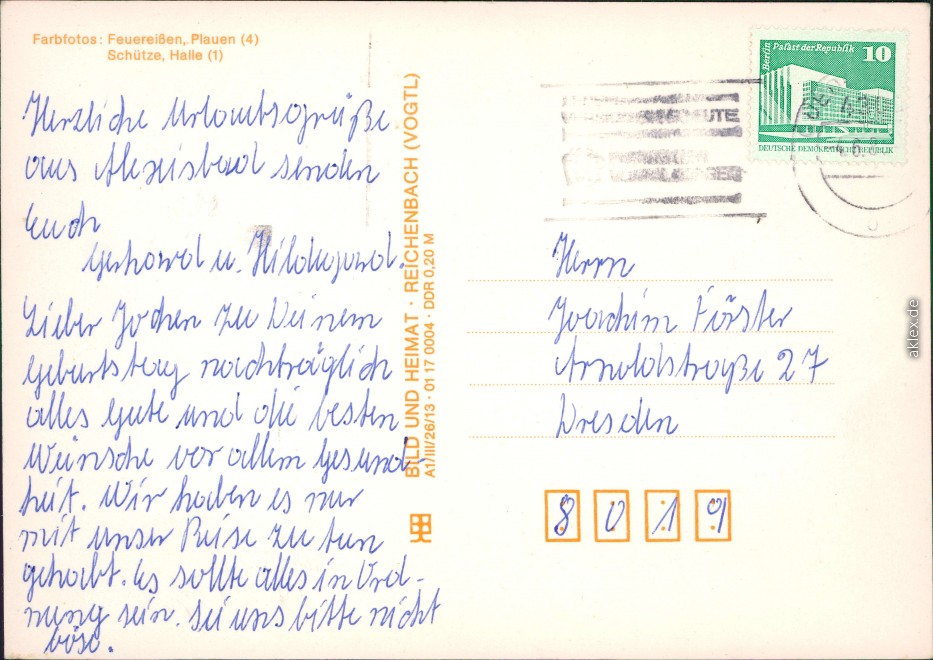 Farbfotos: Feuereißen, Plauen (4)
Schütze, Halle (1)
Herzliche Urlaubsgrüße
aus Alexisbad senden
Euch
Gerhard u. Hildegard.
Lieber Jochen zu Deinem
Geburtstag nachträglich
alles Gute und die besten
Wünsche vor allem Gesund-
heit. Wir haben es nur
mit unser Reise zu tun
gehabt. Es sollte alles in Ord-
nung sein. Sei uns bitte nicht
böse.
BILD UND HEIMAT · REICHENBACH (VOGTL)
A1/III/26/13 · 01 17 0004 · DDR 0,20 M
Berlin
Palast der Republik
10
DEUTSCHE DEMOKRATISCHE REPUBLIK
Herrn
Joachim Förster
Arnoldstraße 27
Dresden
8019
aklex.de